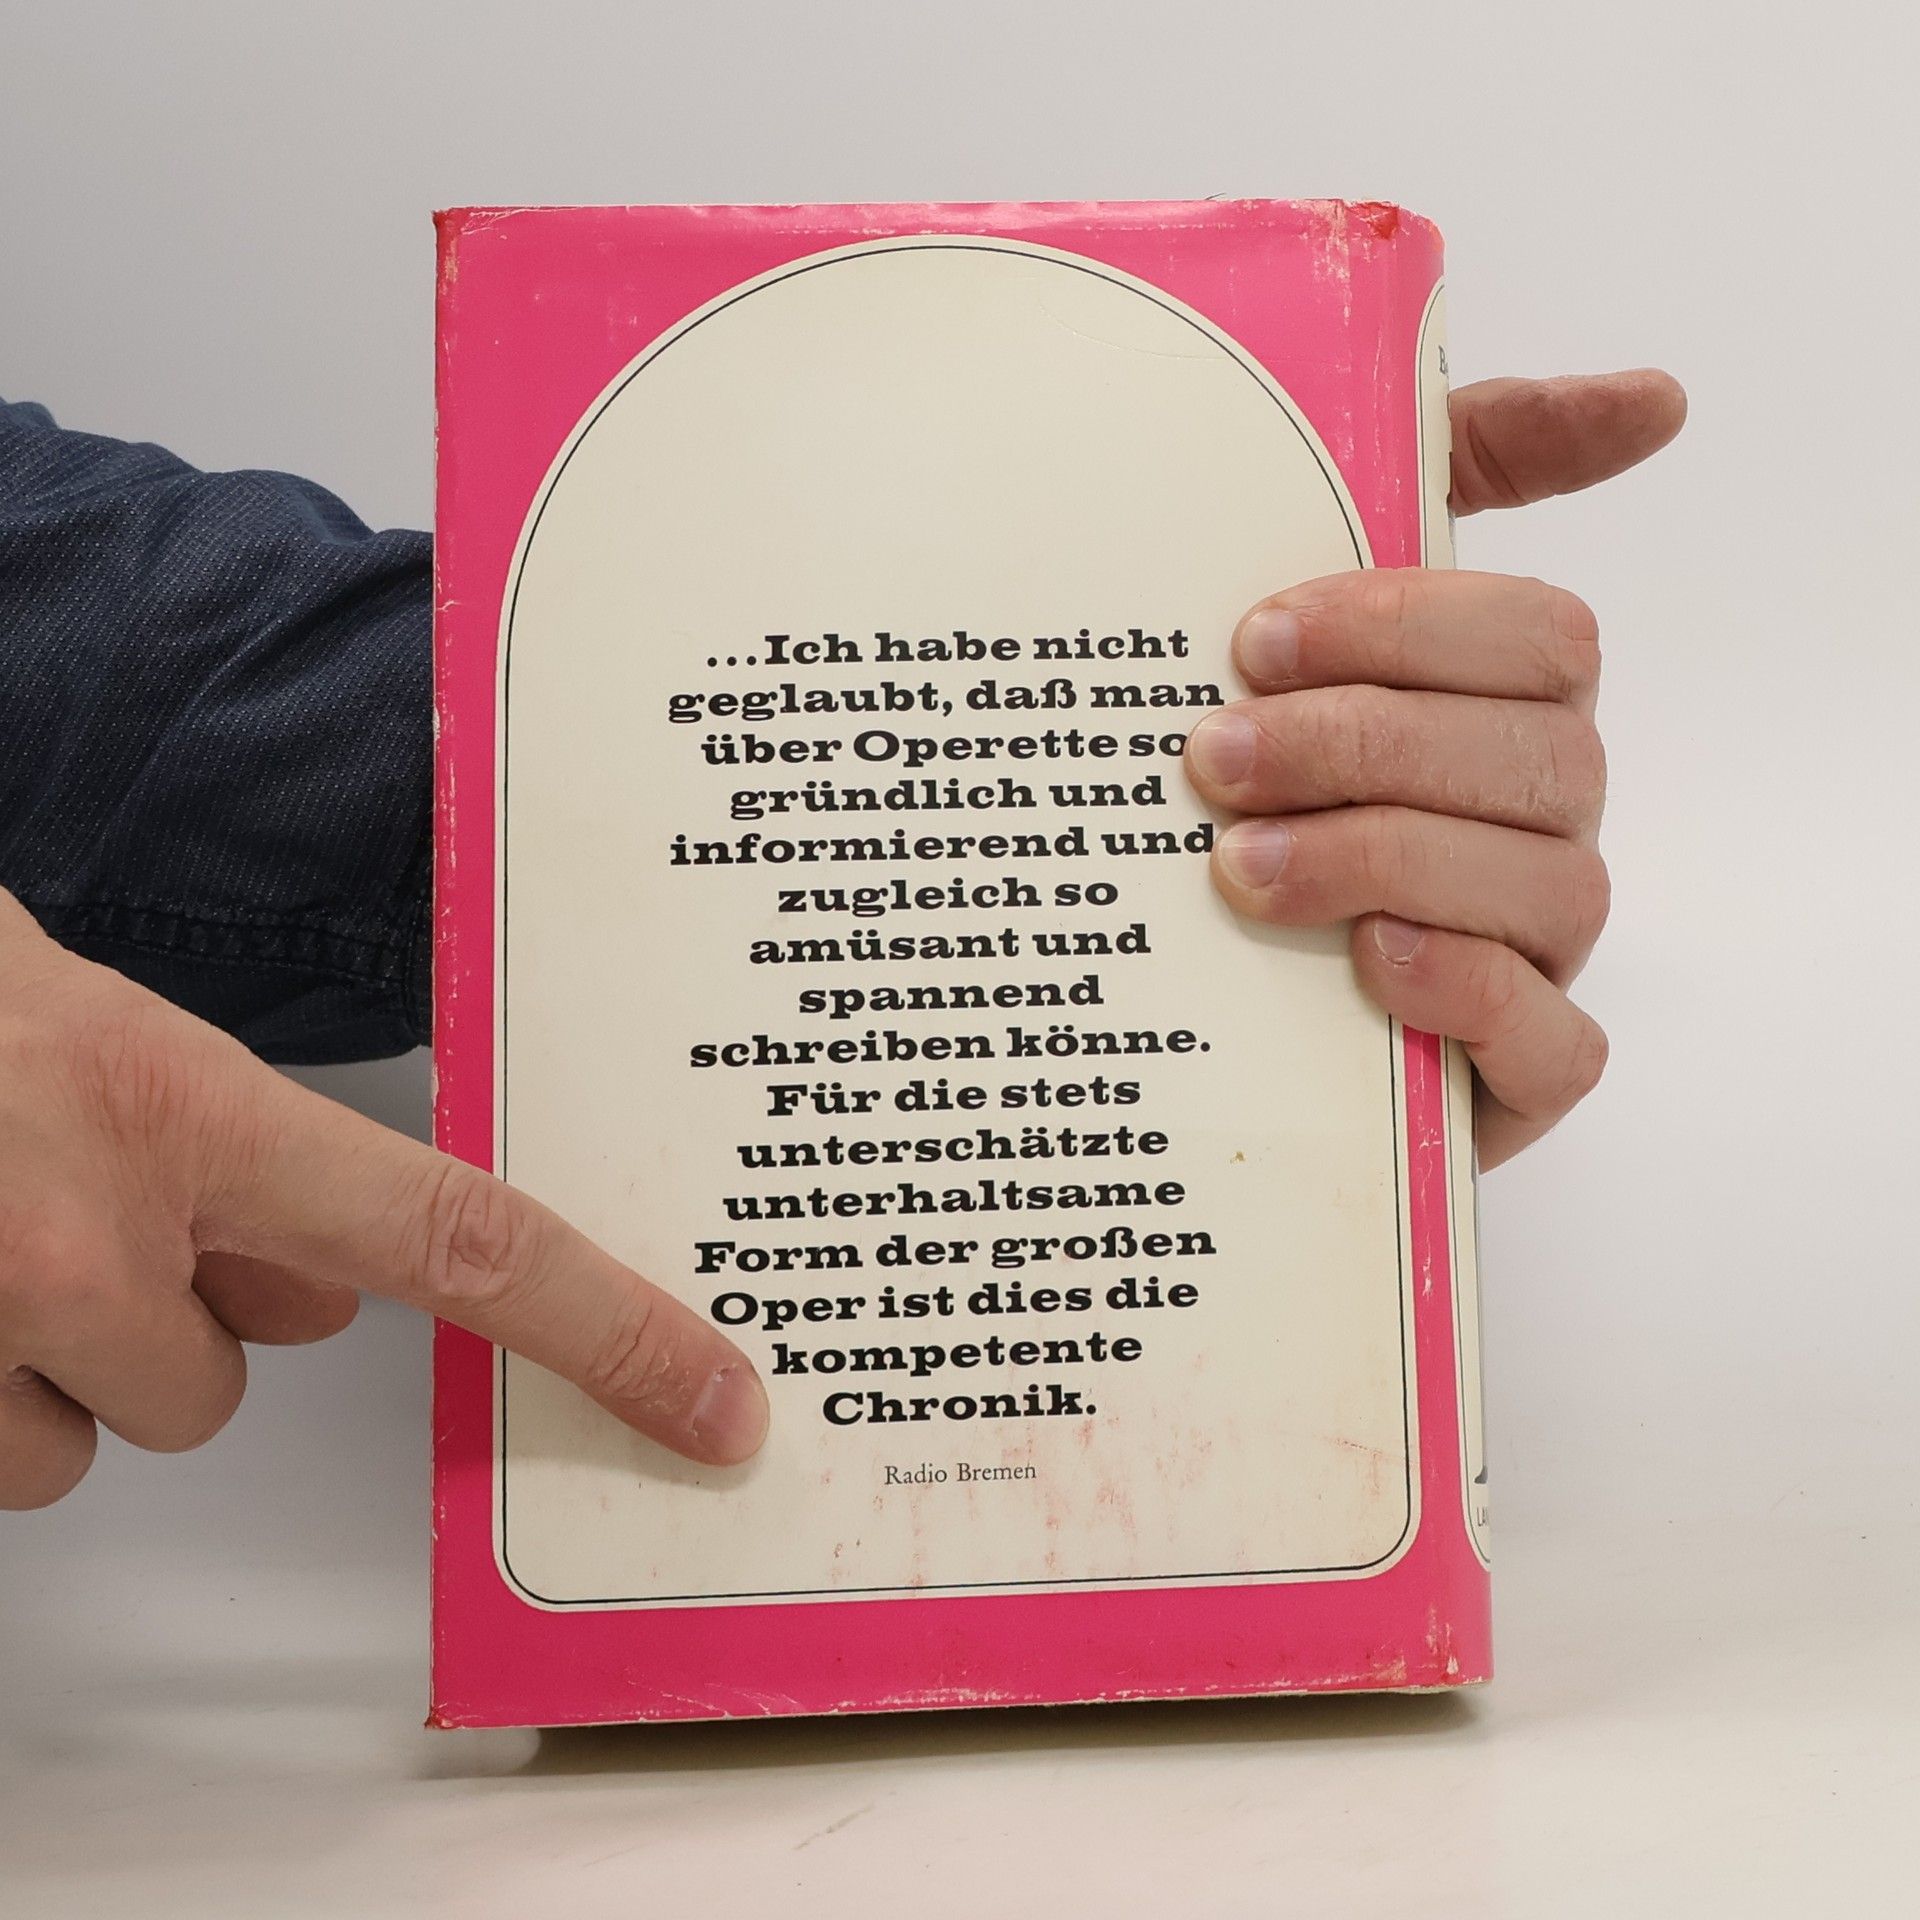 ...Ich habe nicht
geglaubt, daß man
über Operette so
gründlich und
informierend und
zugleich so
amüsant und
spannend
schreiben könne.
Für die stets
unterschätzte
unterhaltsame
Form der großen
Oper ist dies die
kompetente
Chronik.
Radio Bremen